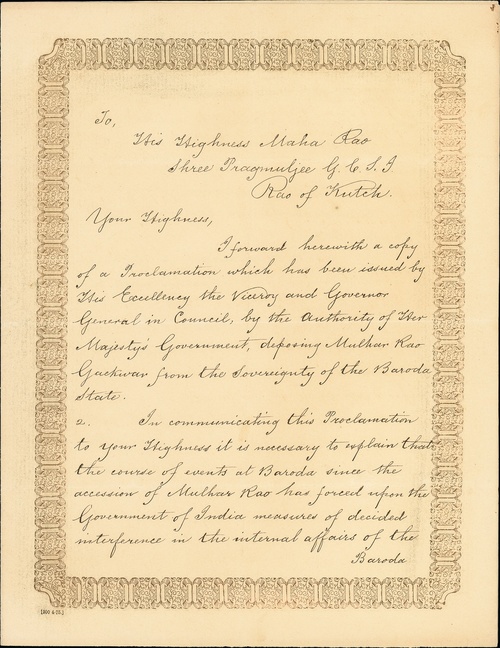 To,
His Highness Maha Rao
Shree Pragmuljee G. C. S. I
Rao of Kutch.
Your Highness,
I forward herewith a copy
of a Proclamation which has been issued by
His Excellency the Viceroy and Governor
General in Council, by the Authority of Her
Majesty's Government, deposing Mulhar Rao
Guckwar from the Sovereignty of the Baroda
State.
2. In communicating this Proclamation
to your Highness it is necessary to explain that
the course of events at Baroda since the
accession of Mulhar Rao has forced upon the
Government of India measures of decided
interference in the internal affairs of the
Baroda